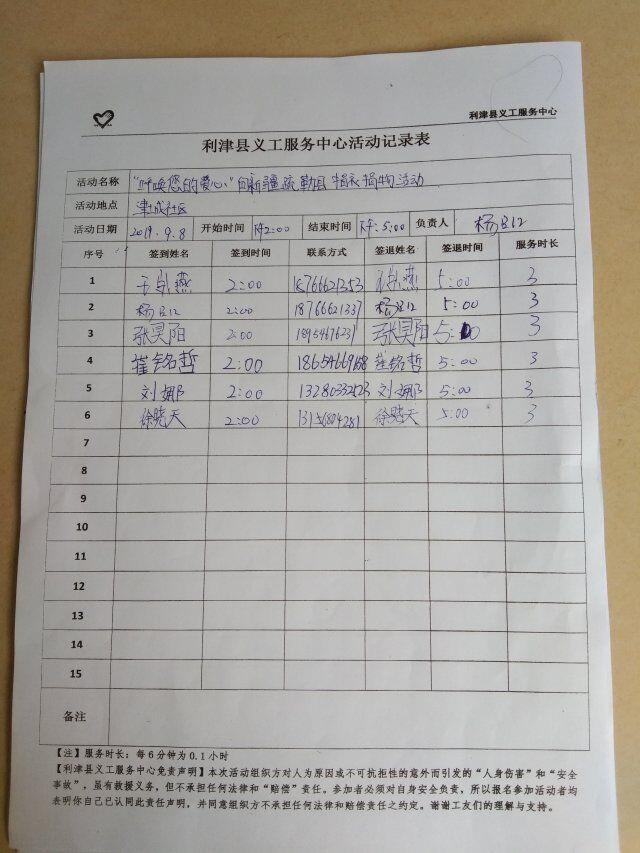 利津县义工服务中心
利津县义工服务中心活动记录表
活动名称 "呼唤您的爱心"向新疆疏勒县捐衣捐物活动
活动地点 津城社区
活动日期 2019.9.8 开始时间 下午2:00 结束时间 下午:5:00 负责人 杨
序号 签到姓名 签到时间 联系方式 签退姓名 签退时间 服务时长
1 燕 2:00 18766621353 燕 5:00 3
2 杨 2:00 18766621337 杨 5:00 3
3 张昊阳 2:00 18954676231 张昊阳 5:00 3
4 崔铭哲 2:00 崔铭哲 5:00 3
5 刘娜 2:00 刘娜 5:00 3
6 徐晓天 2:00 13156804281 徐晓天 5:00 3
7
8
9
10
11
12
13
14
15
备注
【注】服务时长：每6分钟为0.1小时
【利津县义工服务中心免责声明】本次活动组织方对人为原因或不可抗拒性的意外而引发的“人身伤害”和“安全
事故”，虽有救援义务，但不承担任何法律和“赔偿”责任。参加者必须对自身安全负责，所以报名参加活动者均
表明你自己已认同此责任声明，并同意组织方不承担任何法律和赔偿责任之约定。谢谢工友们的理解与支持。